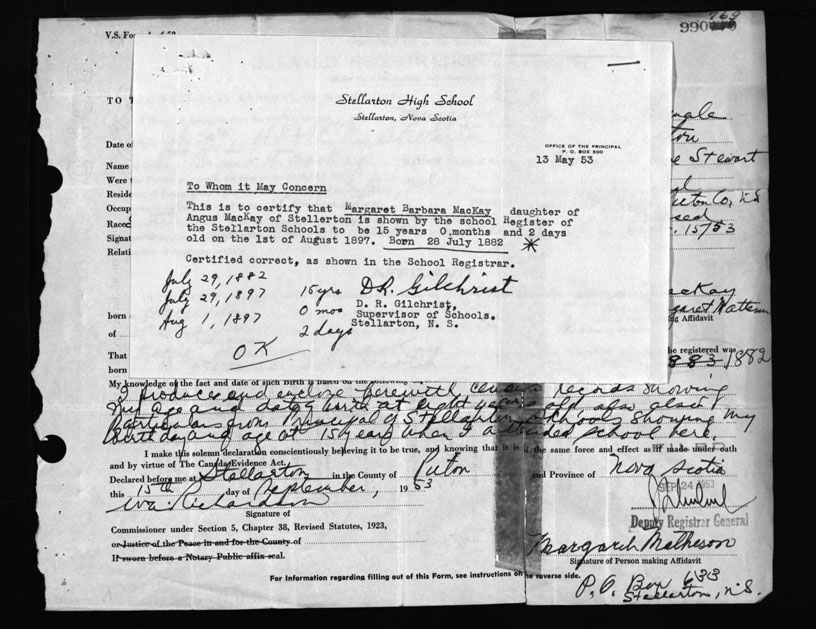 V.S. Fo
990
Stellarton High School
Stellarton, Nova Scotia
OFFICE OF THE PRINCIPAL
P. O. BOX 500
13 May 53
TO T
Date of
Name
Were t
Reside
Occup
Race
Signat
Relati
To Whom it May Concern
This is to certify that Margaret Barbara MacKay daughter of
Angus MacKay of Stellerton is shown by the school Register of
the Stellarton Schools to be 15 years 0,months and 2 days
old on the 1st of August 1897. Born 28 July 1882 *
Certified correct, as shown in the School Registrar.
July 29, 1882
July 29, 1897 15 yrs
Aug 1, 1897 0 mos
2 days
OK
D.R. Gilchrist
D. R. Gilchrist,
Supervisor of Schools.
Stellarton, N. S.
Stewart
15/53
acKay
ng Affidavit
born
of
That
be registered was
born
1883, 1882
My knowledge of the fact and date of such Birth is based on the following
I produce and enclose herewith census records showing
my age and date of birth at eight years old also
particulars from Principal of Stellarton Schools showing my
birthday and age at 15 years when I attended school here.
I make this solemn declaration conscientiously believing it to be true, and knowing that it is of the same force and effect as if made under oath
and by virtue of The Canada Evidence Act.
Declared before me at Stellarton in the County of Pictou and Province of Nova Scotia
this 15th day of September, 1953
SEP 24 1953
Wm. Richardson
Signature of
Deputy Registrar General
Commissioner under Section 5, Chapter 38, Revised Statutes, 1923,
or Justice of the Peace in and for the County of
If sworn before a Notary Public affix seal.
Margaret Matheson
Signature of Person making Affidavit
For Information regarding filling out of this Form, see instructions on the reverse side.
P.O. Box 633
Stellarton, N.S.